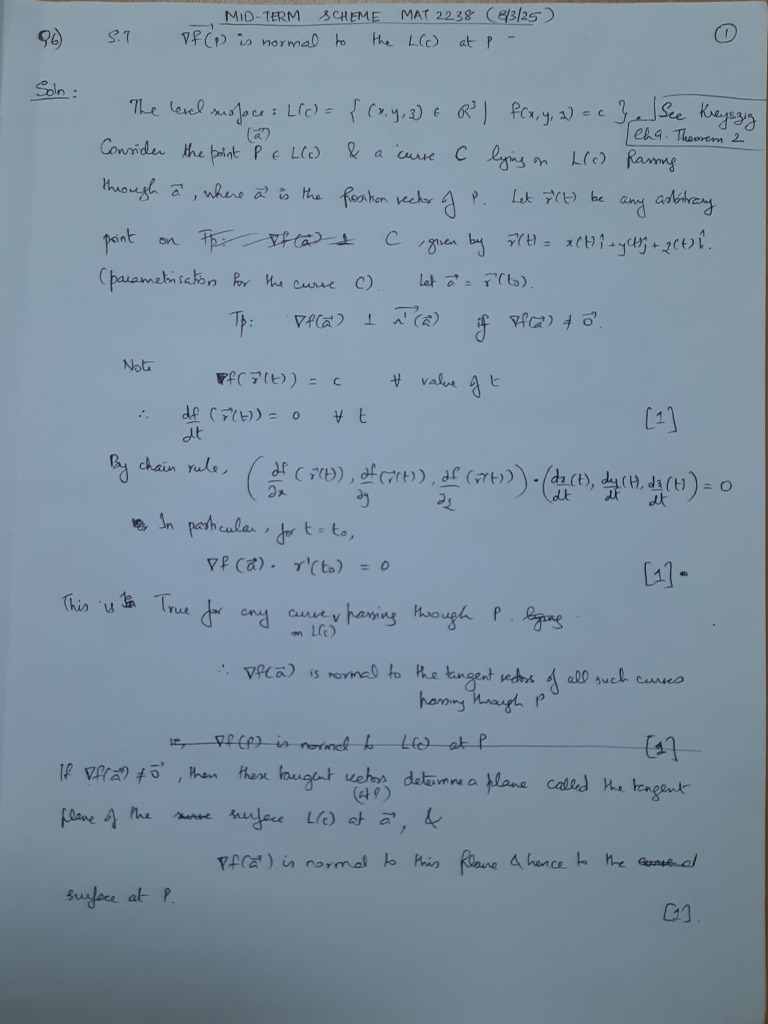 MID-TERM SCHEME MAT 2238 (8/3/25)
Q6) S.T ∇f(P) is normal to the L(c) at P - ①
Soln :
The level surface : L(c) = { (x, y, z) ∈ R³ | f(x, y, z) = c }. See Kreyszig
Ch 9. Theorem 2
(a⃗)
Consider the point P ∈ L(c) & a curve C lying on L(c) Passing
through a⃗, where a⃗ is the position vector of P. Let r⃗(t) be any arbitrary
point on Tp: ∇f(a⃗) ⊥ C, given by r⃗(t) = x(t)î + y(t)ĵ + z(t)k̂.
(parametrisation for the curve C). Let a⃗ = r⃗(t₀).
Tp: ∇f(a⃗) ⊥ r⃗'(a⃗) if ∇f(a⃗) ≠ 0⃗.
Note
f(r⃗(t)) = c ∀ value of t
∴ df/dt (r⃗(t)) = 0 ∀ t [1]
By chain rule, (∂f/∂x (r⃗(t)), ∂f/∂y (r⃗(t)), ∂f/∂z (r⃗(t))) · (dx/dt (t), dy/dt (t), dz/dt (t)) = 0
In particular, for t = t₀,
∇f(a⃗) · r'(t₀) = 0 [1]
This is True for any curve passing through P.
on L(c)
∴ ∇f(a⃗) is normal to the tangent vectors of all such curves
passing through P
ie, ∇f(P) is normal to L(c) at P [1]
If ∇f(a⃗) ≠ 0⃗, then these tangent vectors determine a plane called the tangent
(at P)
plane of the surface L(c) at a⃗, &
∇f(a⃗) is normal to this plane & hence to the
surface at P.
[1].